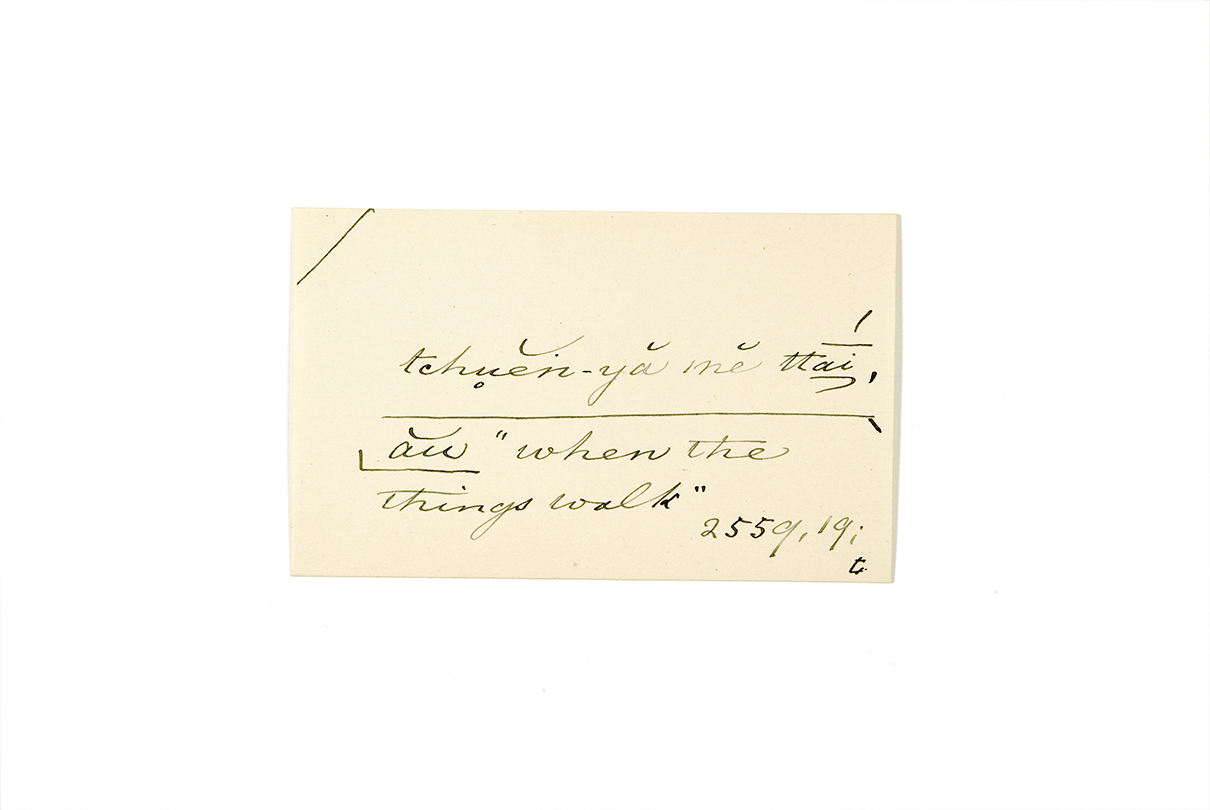 tchụĕn-yă mĕ ttā́i,
ău "when the
things walk"
2559, 19;
t.